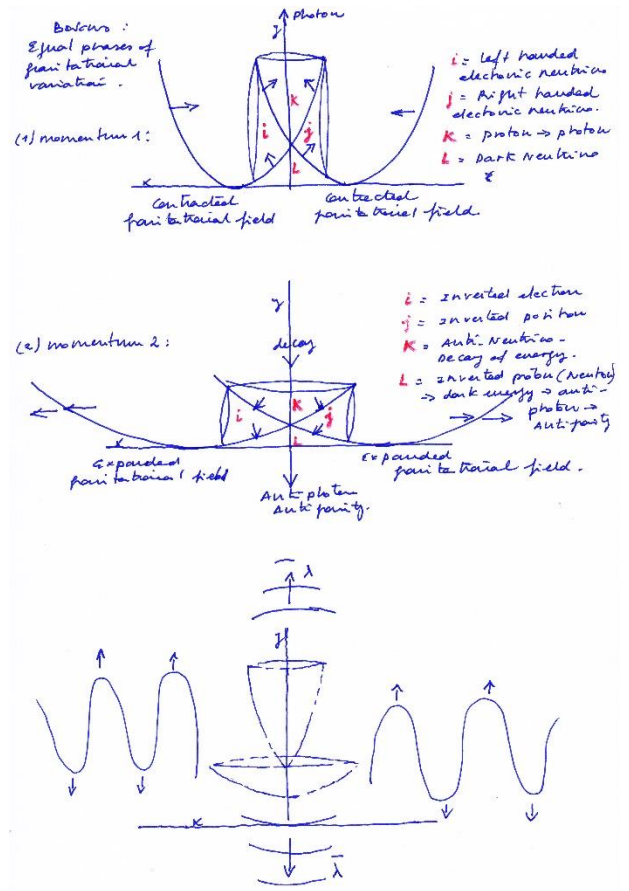 Bosons :
Equal phases of
gravitational
variation.
y
photon
(1) momentum 1:
i
K
j
L
x
Contracted
gravitational field
Contracted
gravitational field.
i = Left handed
electronic neutrino
j = Right handed
electronic neutrino.
K = proton → photon
L = Dark Neutrino
(2) momentum 2:
y
decay
i
K
j
L
x
Expanded
gravitational field
Expanded
gravitational field.
Anti photon
Anti parity.
i = Inverted electron
j = Inverted positron
K = Anti-Neutrino-
Decay of energy.
L = Inverted proton (Neutron)
→ dark energy → anti-
photon →
Antiparity
λ
y
x
λ